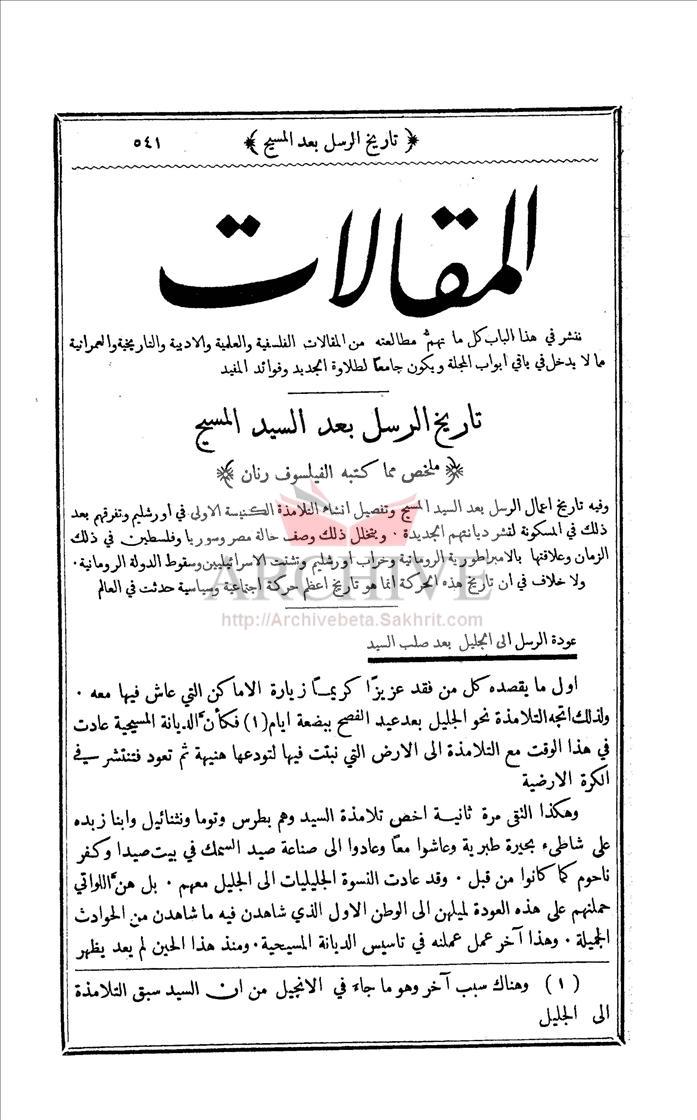 ﴿ تاريخ الرسل بعد المسيح ﴾ ٥٤١
المقالات
ننشر في هذا الباب كل ما تهمّ مطالعته من المقالات الفلسفية والعلمية والادبية والتاريخية والعمرانية
مما لا يدخل في باقي ابواب المجلة ويكون جامعاً لطلاوة الجديد وفوائد المفيد
تاريخ الرسل بعد السيد المسيح
﴿ ملخص مما كتبه الفيلسوف رنان ﴾
وفيه تاريخ اعمال الرسل بعد السيد المسيح وتفصيل انشاء التلامذة الكنيسة الاولى في اورشليم وتفرقهم بعد
ذلك في المسكونة لنشر ديانتهم الجديدة . ويتخلل ذلك وصف حالة مصر وسوريا وفلسطين في ذلك
الزمان وعلاقتها بالامبراطورية الرومانية وخراب اورشليم وتشتت الاسرائيليين وسقوط الدولة الرومانية .
ولا خلاف في ان تاريخ هذه الحركة انما هو تاريخ أعظم حركة اجتماعية وسياسية حدثت في العالم
ARCHIVE
http://Archivebeta.Sakhrit.com
عودة الرسل الى الجليل بعد صلب السيد
اول ما يقصده كل من فقد عزيزًا كريمًا زيارة الاماكن التي عاش فيها معه .
ولذلك اتجه التلامذة نحو الجليل بعد عيد الفصح ببضعة ايام (١) فكأن الديانة المسيحية عادت
في هذا الوقت مع التلامذة الى الارض التي نبتت فيها لتودعها هنيهة ثم تعود فتنتشر في
الكرة الارضية
وهكذا التقى مرة ثانية اخص تلامذة السيد وهم بطرس وتوما ونثنائيل وابنا زبده
على شاطىء بحيرة طبرية وعاشوا معاً وعادوا الى صناعة صيد السمك في بيت صيدا وكفر
ناحوم كما كانوا من قبل . وقد عادت النسوة الجليليات الى الجليل معهم . بل هنّ اللواتي
حملنهم على هذه العودة لميلهن الى الوطن الاول الذي شاهدن فيه ما شاهدن من الحوادث
الجميلة . وهذا آخر عمل عملنه في تاسيس الديانة المسيحية . ومنذ هذا الحين لم يعد يظهر
(١) وهناك سبب آخر وهو ما جاء في الانجيل من ان السيد سبق التلامذة
الى الجليل